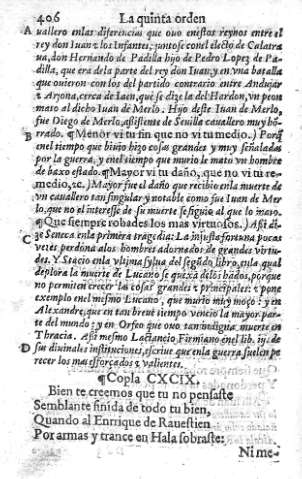 406 La quinta orden
A uallero enlas diferencias que ouo enestos reynos entre el
rey don Iuan z los Infantes, juntose conel electo de Calatra
ua, don Hernando de Padilla hijo de Pedro Lopez de Pa-
dilla, que era dela parte del rey don Iuan, y en vna batalla
que ouieron con los del partido contrario entre Andujar
z Arjona, cerca de Iaen, que se dize la del Hardon, vn peon
mato al dicho Iuan de Merlo. Hijo deste Iuan de Merlo,
fue Diego de Merlo, assistente de Seuilla cauallero muy hõ-
B rrado. ¶Menor vi tu fin que no vi tu medio.) Porq̃
enel tiempo que biuio hizo cosas grandes y muy señaladas
por la guerra, y enel tiempo que murio le mato vn hombre
de baxo estado. ¶Mayor vi tu daño, que no vi tu re-
medio, &c.) Mayor fue el daño que recibio enla muerte de
vn cauallero tan singular y notable como fue Iuan de Mer
lo, que no el interesse de su muerte se siguio al que lo mato.
¶Que siempre robades los mas virtuosos.) Assi di-
C ze Seneca enla primera tragedia: La injusta fortuna pocas
vezes perdona alos hombres adornados de grandes virtu-
des. Y Stacio enla vltima sylua del segũdo libro, enla qual
deplora la muerte de Lucano se quexa delos hados, porque
no permiten crecer las cosas grandes z principales: z pone
exemplo enel mismo Lucano, que murio muy moço: y en
Alexandre, que en tan breue tiempo vencio la mayor par-
te del mundo: y en Orfeo que ouo tan indigna muerte en
Thracia. Assi mesmo Lactancio Firmiano enel lib. iij. de
D sus diuinales instituciones, escriue que enla guerra suelen pe
recer los mas esforçados z valientes.
¶Copla CXCIX.
Bien te creemos que tu no pensaste
Semblante finida de todo tu bien,
Quando al Enrrique de Rauestien
Por armas y trance en Hala sobraste:
Ni me-